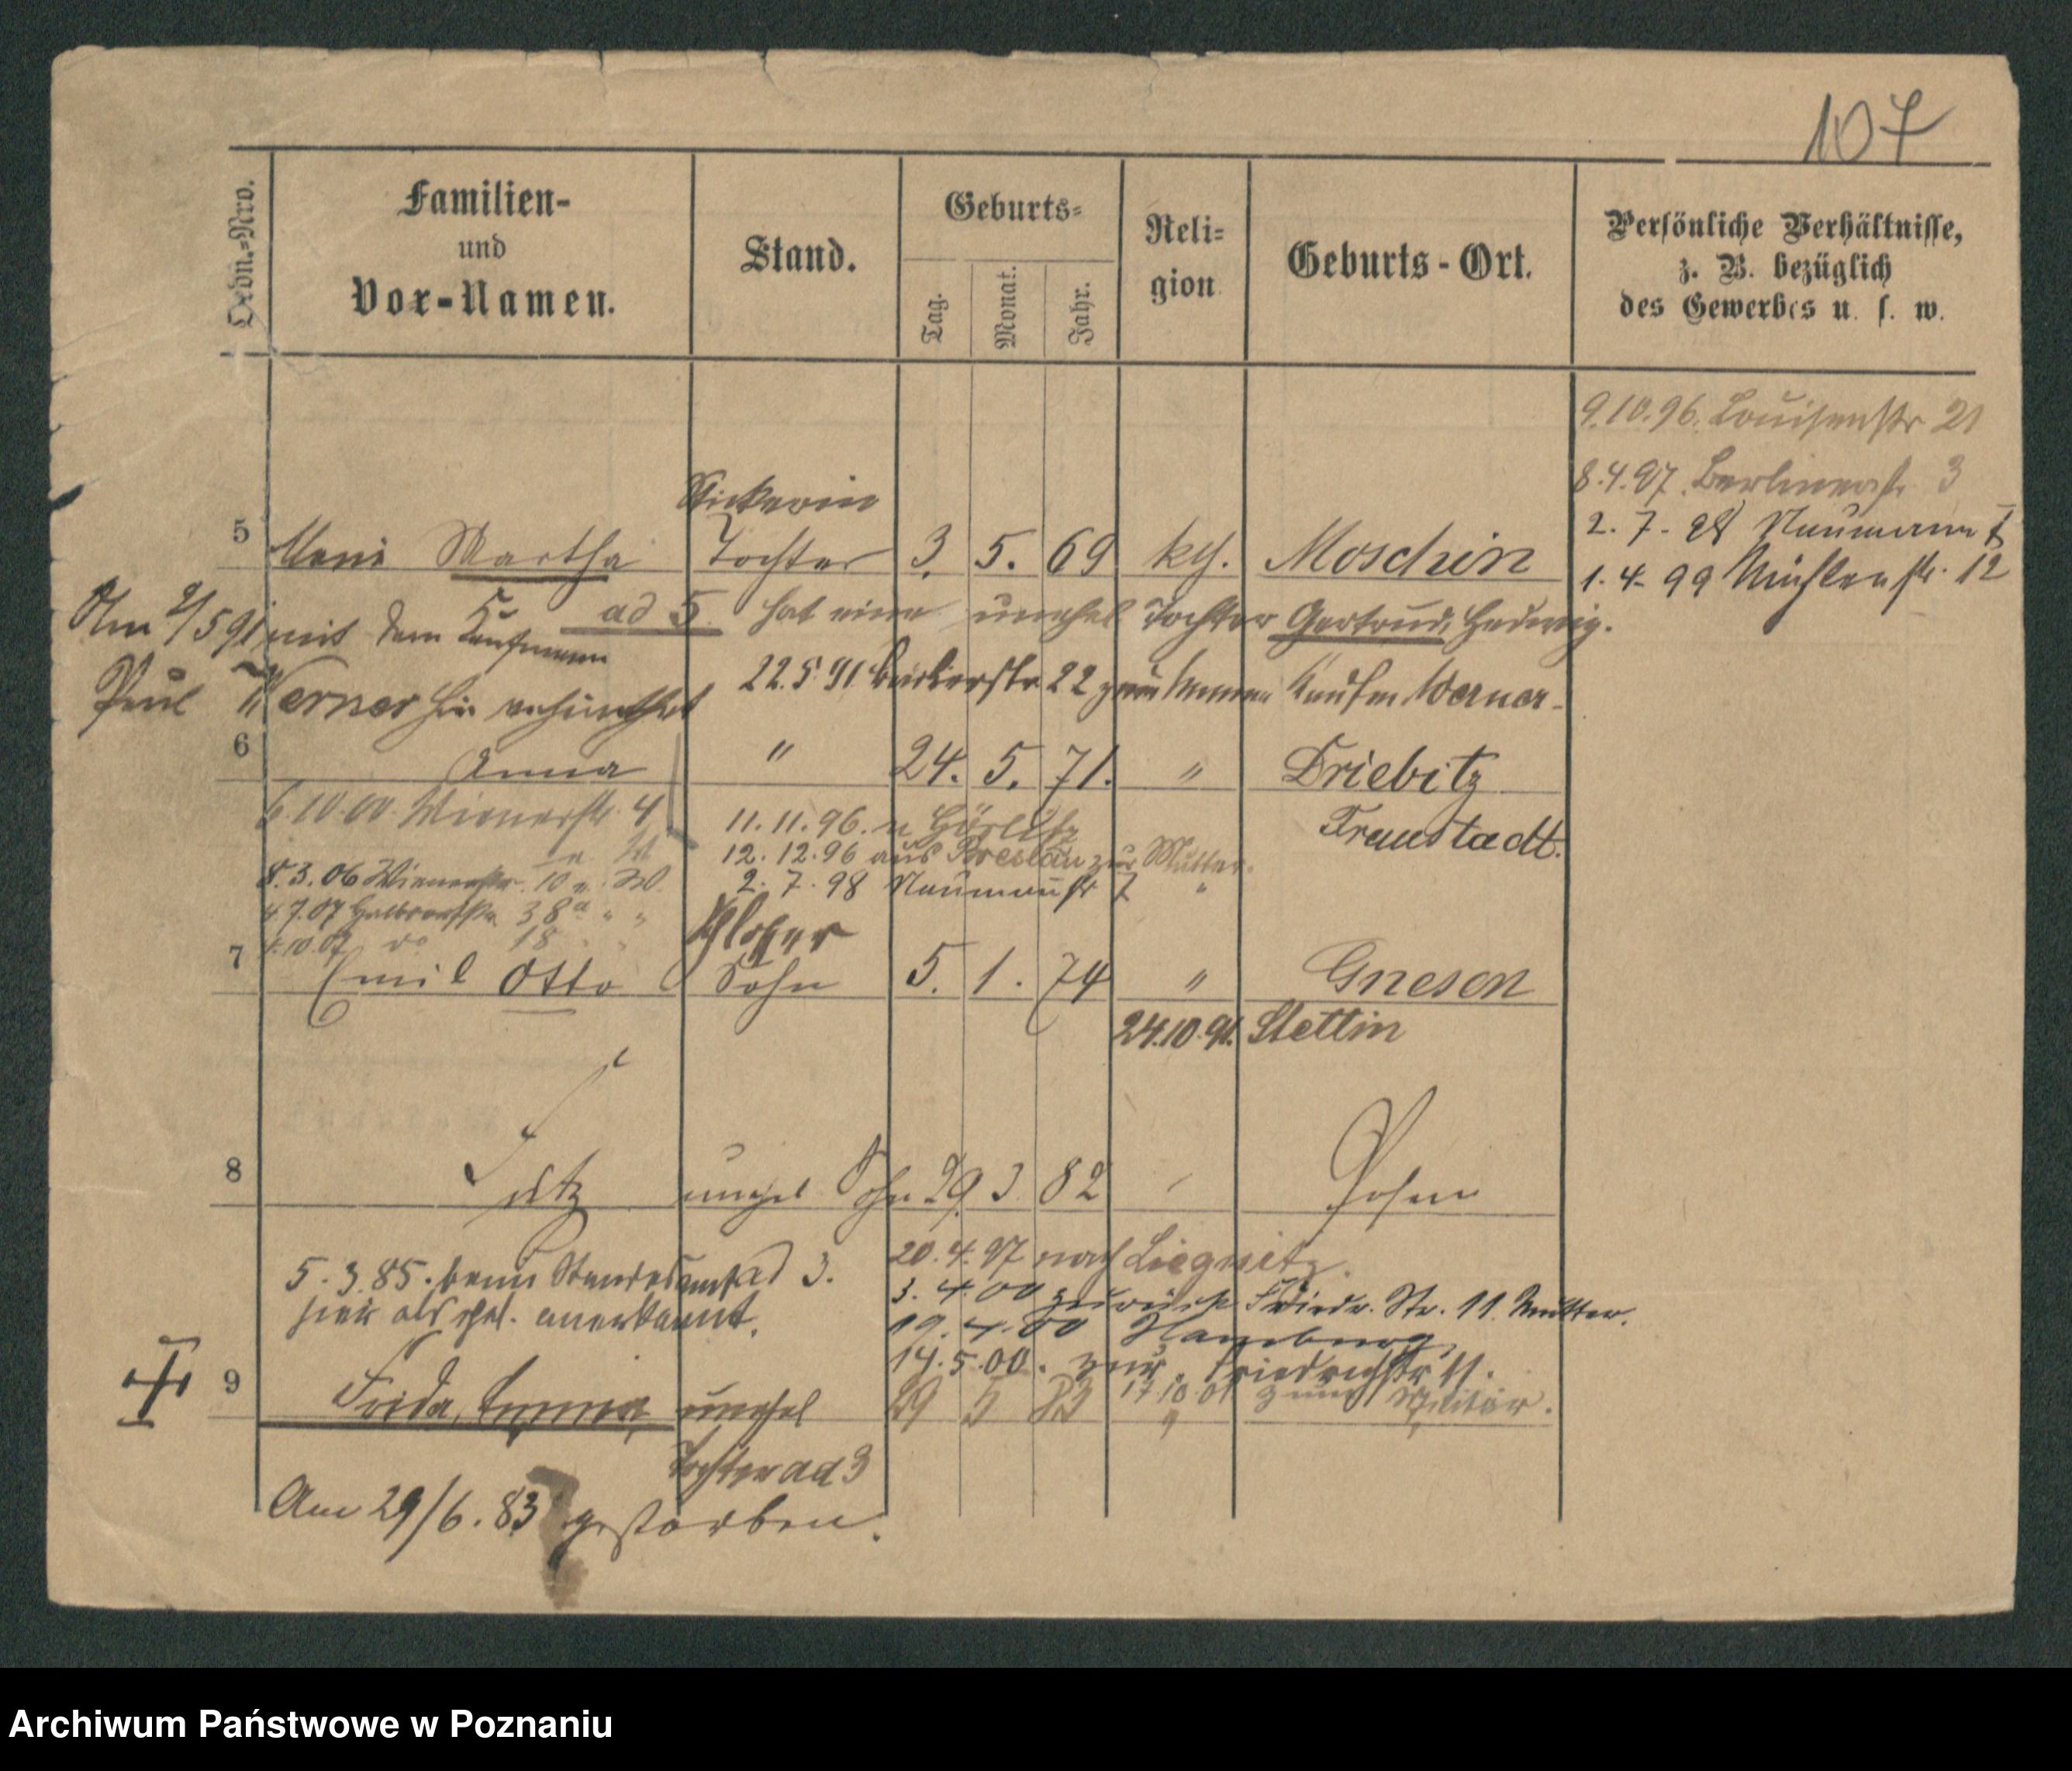 107
Ordn.=Nro.
Familien-
und
Vor-Namen.
Stand.
Geburts=
Tag.
Monat.
Jahr.
Reli=
gion
Geburts-Ort.
Persönliche Verhältnisse,
z. B. bezüglich
des Gewerbes u. s. w.
9.10.96. Louisenstr 21
8.4.97. Berlinerstr 3
2. 7. 98 Naumannstr
1. 4. 99 Mühlenstr. 12
Stickerin
5 Martha Tochter 3. 5. 69 kth. Moschin
ad 5 hat eine unehel Tochter Gertrud, Hedwig.
Am 2/5 91 mit dem Kaufmann
Paul Werner hier verheirathet
22.5 91 22 zum Kaufm Werner
6 Anna " 24. 5. 71. " Driebitz
Fraustadt.
6.10.00. Wienerstr. 4
8.3.06 Wienerstr. 10
4.7.07 38a " "
4.10.07 do 18 " "
11.11.96. n Görlitz
12.12.96 aus Breslau zur Mutter.
2. 7. 98 Naumannstr 7 "
Schlosser
7 Emil Otto Sohn 5. 1. 74 " Gnesen
24.10.91. Stettin
8 unehel Sohn 29 3 82 Posen
5.3.85. beim Standesamt ad 3.
hier als ehel. anerkannt.
20.4.97 nach Liegnitz.
3.4.00 zurück Friedr. Str. 11. Mutter.
19.4.00 Hamburg
14.5.00. zur. Friedrichstr 11.
17 10 01 zum Militär.
9 Frida, Emma, unehel 29 5 83 "
Tochter ad 3
Am 29/6. 83 gestorben.
Archiwum Państwowe w Poznaniu